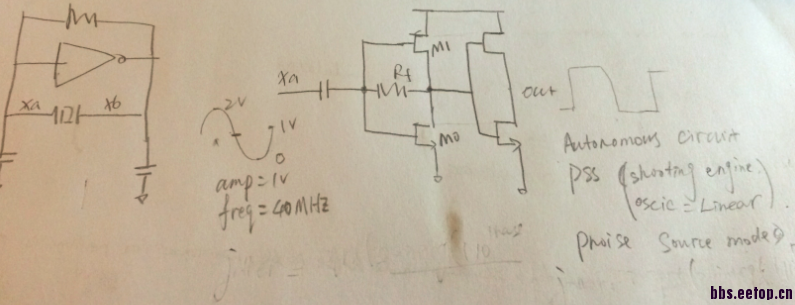 xa
xb
2V
1V
0
amp = 1V
freq = 40MHz
xa
Rf
M1
M0
out
Autonomous circuit
PSS (shooting engine.
oscic = Linear).
pnoise Source mode
bbs.eetop.cn